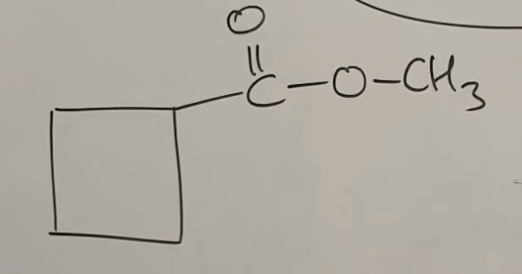 O
C-O-CH₃